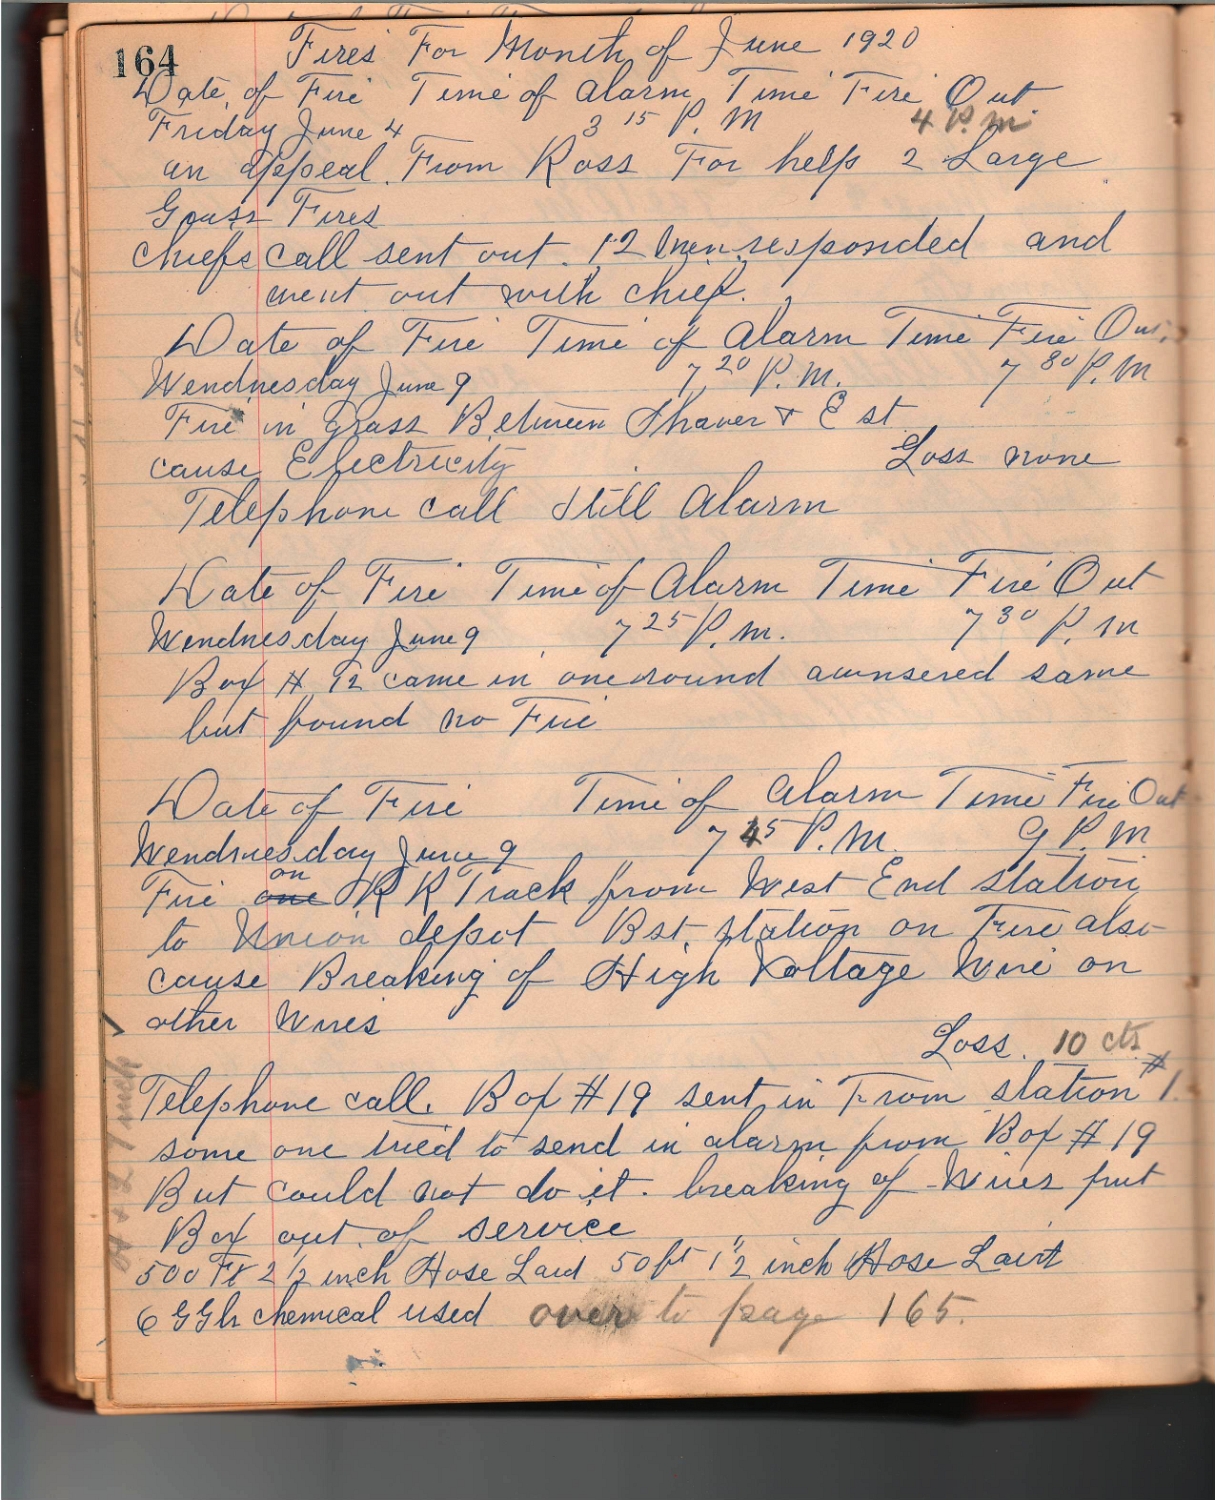 164
Fires For Month of June 1920
Date of Fire Time of alarm Time Fire Out
Friday June 4 3 15 P. M 4 P. m.
an appeal From Ross For help 2 Large
Grass Fires
chiefs call sent out. 12 men responded and
went out with chief.
Date of Fire Time of alarm Time Fire Out
Wendnesday June 9 7 20 P. M. 7 30 P. M
Fire in Grass Between Shaver & E st
cause Electricity Loss none
Telephone call still alarm
Date of Fire Time of alarm Time Fire Out
Wendnesday June 9 7 25 P. m. 7 30 P. m
Box # 12 came in one round awnsered same
but found no Fire
Date of Fire Time of alarm Time Fire Out
Wendnesday June 9 7 45 P. M. 9 P. M
on
Fire one R R Track from West End station
to Union depot Bst. station on Fire also
cause Breaking of High Voltage Wire on
other Wires
Loss. 10 cts
Telephone call. Box # 19 sent in From station # 1.
some one tried to send in alarm from Box # 19
But could not do it. breaking of Wires put
Box out of service
500 Ft 2 1/2 inch Hose Laid 50 ft 1 1/2 inch Hose Laid
6 chemical used over to page 165.